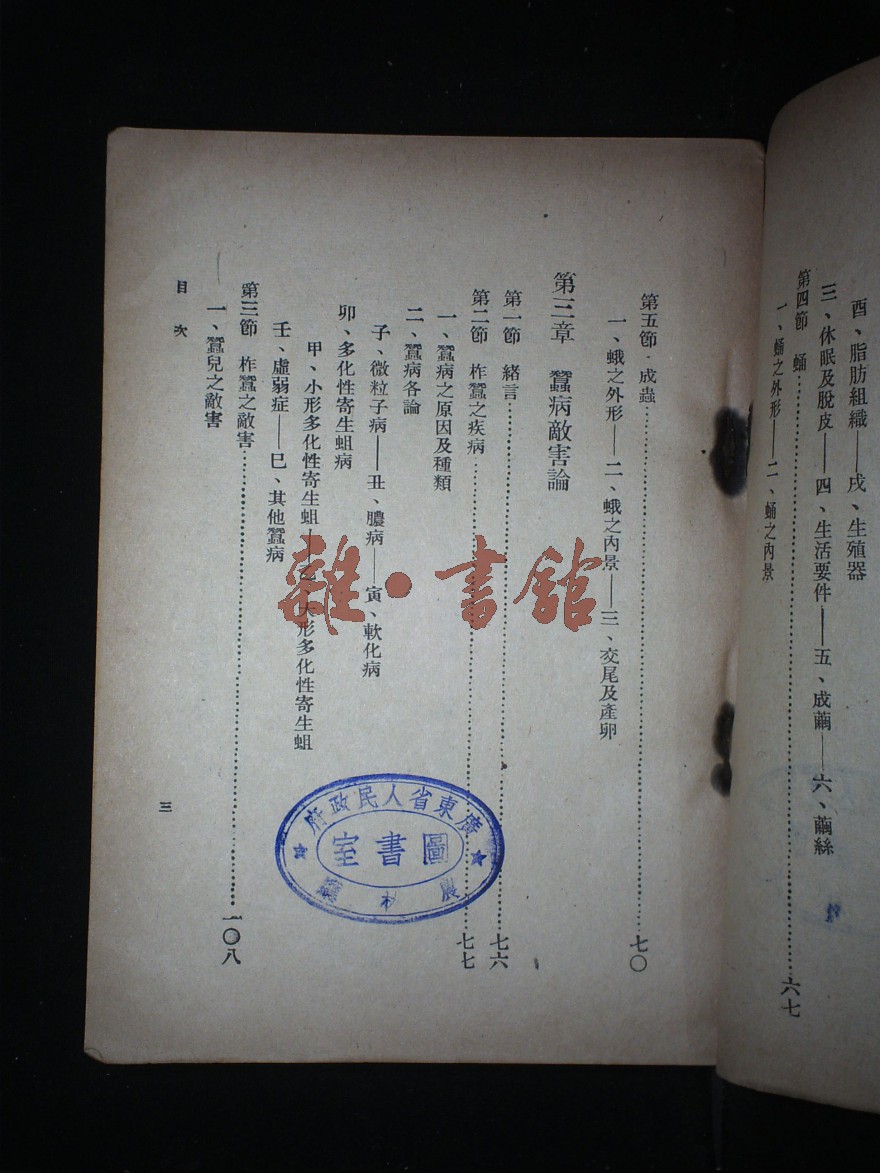 酉、脂肪組織——戌、生殖器
三、休眠及脫皮——四、生活要件——五、成繭——六、繭絲
第四節 蛹……六七
一、蛹之外形——二、蛹之內景
第五節 成蟲……七〇
一、蛾之外形——二、蛾之內景——三、交尾及產卵
第三章 蠶病敵害論
第一節 緒言……七六
第二節 柞蠶之疾病……七七
一、蠶病之原因及種類
二、蠶病各論
子、微粒子病——丑、膿病——寅、軟化病
卯、多化性寄生蛆病
甲、小形多化性寄生蛆——乙、大形多化性寄生蛆
壬、虛弱症——巳、其他蠶病
第三節 柞蠶之敵害……一〇八
一、蠶兒之敵害
目次
三
雜·書館
廣東省人民政府
圖書室
農林廳